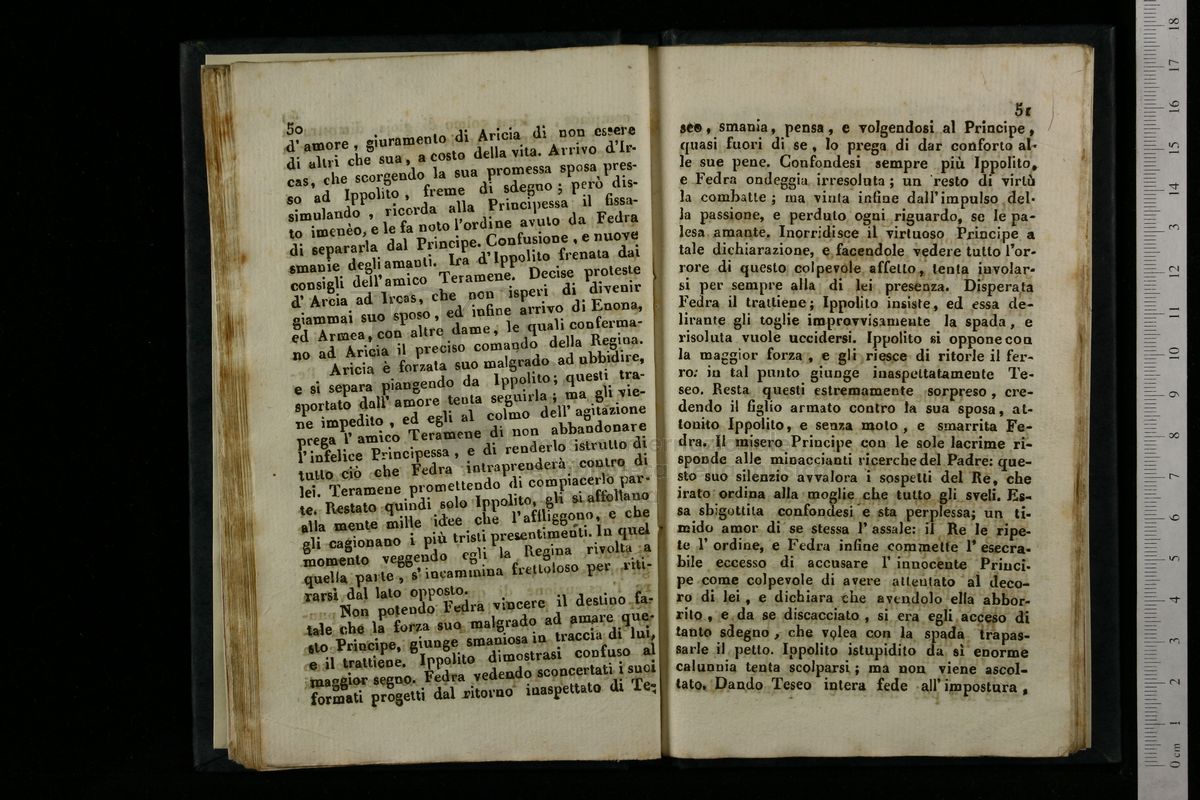 50
d'amore, giuramento di Aricia di non essere
di altri che sua, a costo della vita. Arrivo d'Ir-
cas, che scorgendo la sua promessa sposa pres-
so ad Ippolito, freme di sdegno; però dis-
simulando, ricorda alla Principessa il fissa-
to imenèo, e le fa noto l'ordine avuto da Fedra
di separarla dal Principe. Confusione, e nuove
smanie degli amanti. Ira d'Ippolito frenata dai
consigli dell'amico Teramene. Decise proteste
d'Arcia ad Ircas, che non isperi di divenir
giammai suo sposo, ed infine arrivo di Enona,
ed Armea, con altre dame, le quali conferma-
no ad Aricia il preciso comando della Regina.
Aricia è forzata suo malgrado ad ubbidire,
e si separa piangendo da Ippolito; questi tra-
sportato dall'amore tenta seguirla; ma gli vie-
ne impedito, ed egli al colmo dell'agitazione
prega l'amico Teramene di non abbandonare
l'infelice Principessa, e di renderlo istrutto di
tutto ciò che Fedra intraprenderà contro di
lei. Teramene promettendo di compiacerlo par-
te. Restato quindi solo Ippolito, gli si affollano
alla mente mille idee che l'affliggono, e che
gli cagionano i più tristi presentimenti. In quel
momento veggendo egli la Regina rivolta a
quella parte, s'incammina frettoloso per riti-
rarsi dal lato opposto.
Non potendo Fedra vincere il destino fa-
tale che la forza suo malgrado ad amare que-
sto Principe, giunge smaniosa in traccia di lui,
e il trattiene. Ippolito dimostrasi confuso al
maggior segno. Fedra vedendo sconcertati i suoi
formati progetti dal ritorno inaspettato di Te-
51
seo, smania, pensa, e volgendosi al Principe,
quasi fuori di se, lo prega di dar conforto al-
le sue pene. Confondesi sempre più Ippolito,
e Fedra ondeggia irresoluta; un resto di virtù
la combatte; ma vinta infine dall'impulso del-
la passione, e perduto ogni riguardo, se le pa-
lesa amante. Inorridisce il virtuoso Principe a
tale dichiarazione, e facendole vedere tutto l'or-
rore di questo colpevole affetto, tenta involar-
si per sempre alla di lei presenza. Disperata
Fedra il trattiene; Ippolito insiste, ed essa de-
lirante gli toglie improvvisamente la spada, e
risoluta vuole uccidersi. Ippolito si oppone con
la maggior forza, e gli riesce di ritorle il fer-
ro: in tal punto giunge inaspettatamente Te-
seo. Resta questi estremamente sorpreso, cre-
dendo il figlio armato contro la sua sposa, at-
tonito Ippolito, e senza moto, e smarrita Fe-
dra. Il misero Principe con le sole lacrime ri-
sponde alle minaccianti ricerche del Padre: que-
sto suo silenzio avvalora i sospetti del Re, che
irato ordina alla moglie che tutto gli sveli. Es-
sa sbigottita confondesi e sta perplessa; un ti-
mido amor di se stessa l'assale: il Re le ripe-
te l'ordine, e Fedra infine commette l'esecra-
bile eccesso di accusare l'innocente Princi-
pe come colpevole di avere attentato al deco-
ro di lei, e dichiara che avendolo ella abbor-
rito, e da se discacciato, si era egli acceso di
tanto sdegno, che volea con la spada trapas-
sarle il petto. Ippolito istupidito da sì enorme
calunnia tenta scolparsi; ma non viene ascol-
tato. Dando Teseo intera fede all'impostura,
0 cm 1 2 3 4 5 6 7 8 9 10 11 12 13 14 15 16 17 18